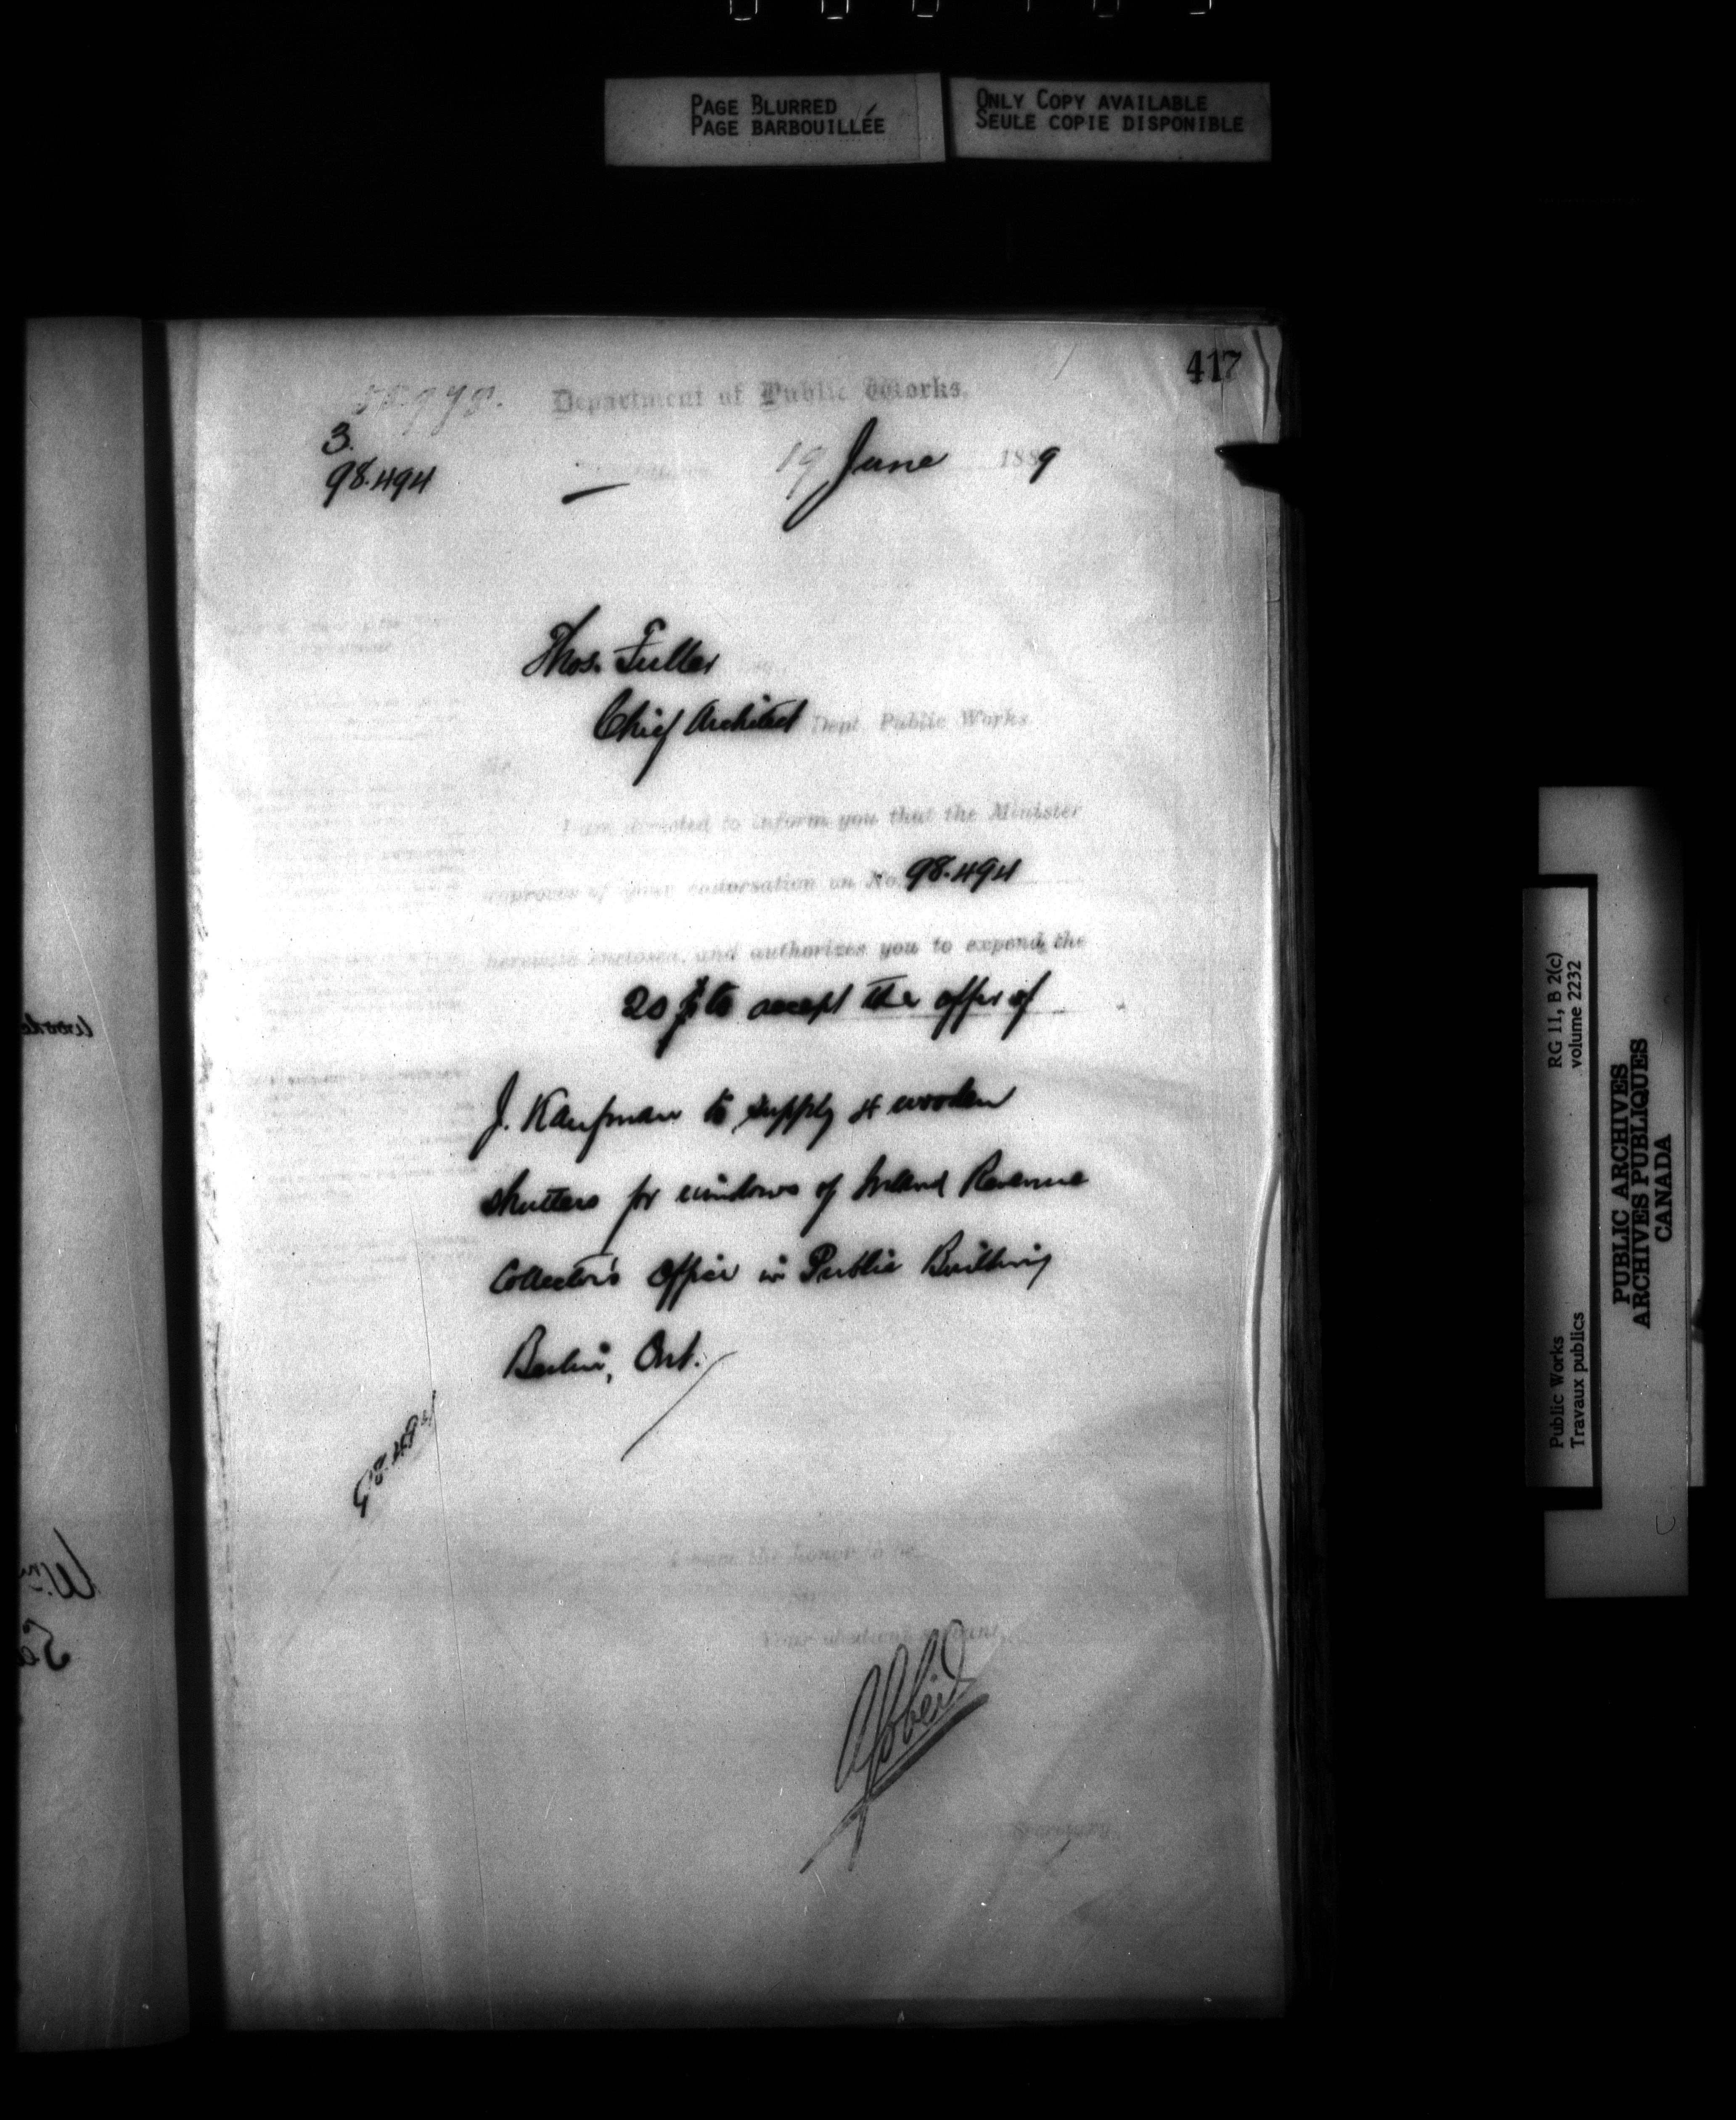 PAGE BLURRED
PAGE BARBOUILLÉE
ONLY COPY AVAILABLE
SEULE COPIE DISPONIBLE
417
Department of Public Works.
3.
98.494
19 June 1889
Thos. Fuller
Chief Architect Dept Public Works
Sir
I am directed to inform you that the Minister
approves of your endorsation on No. 98.494
herewith enclosed, and authorizes you to expend the
to accept the offer of
J. Kaufman to supply 4 wooden
shutters for windows of Inland Revenue
Collector's Office in Public Building
Berlin, Ont.
98.494
I have the honor to be
Sir
Your obedient servant,
Secretary
RG 11, B 2(c)
volume 2232
Public Works
Travaux publics
PUBLIC ARCHIVES
ARCHIVES PUBLIQUES
CANADA